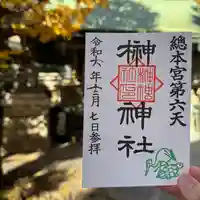 總本宮第六天
榊神社
令和六年十二月七日参拝